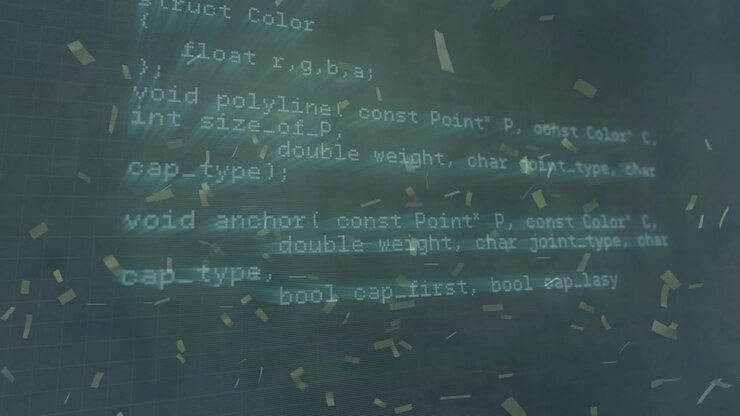 struct Color
{
float r,g,b,a;
};
void polyline( const Point* P, const Color* C,
int size_of_P,
double weight, char joint_type, char
cap_type);
void anchor( const Point* P, const Color* C,
double weight, char joint_type, char
cap_type,
bool cap_first, bool cap_lasy